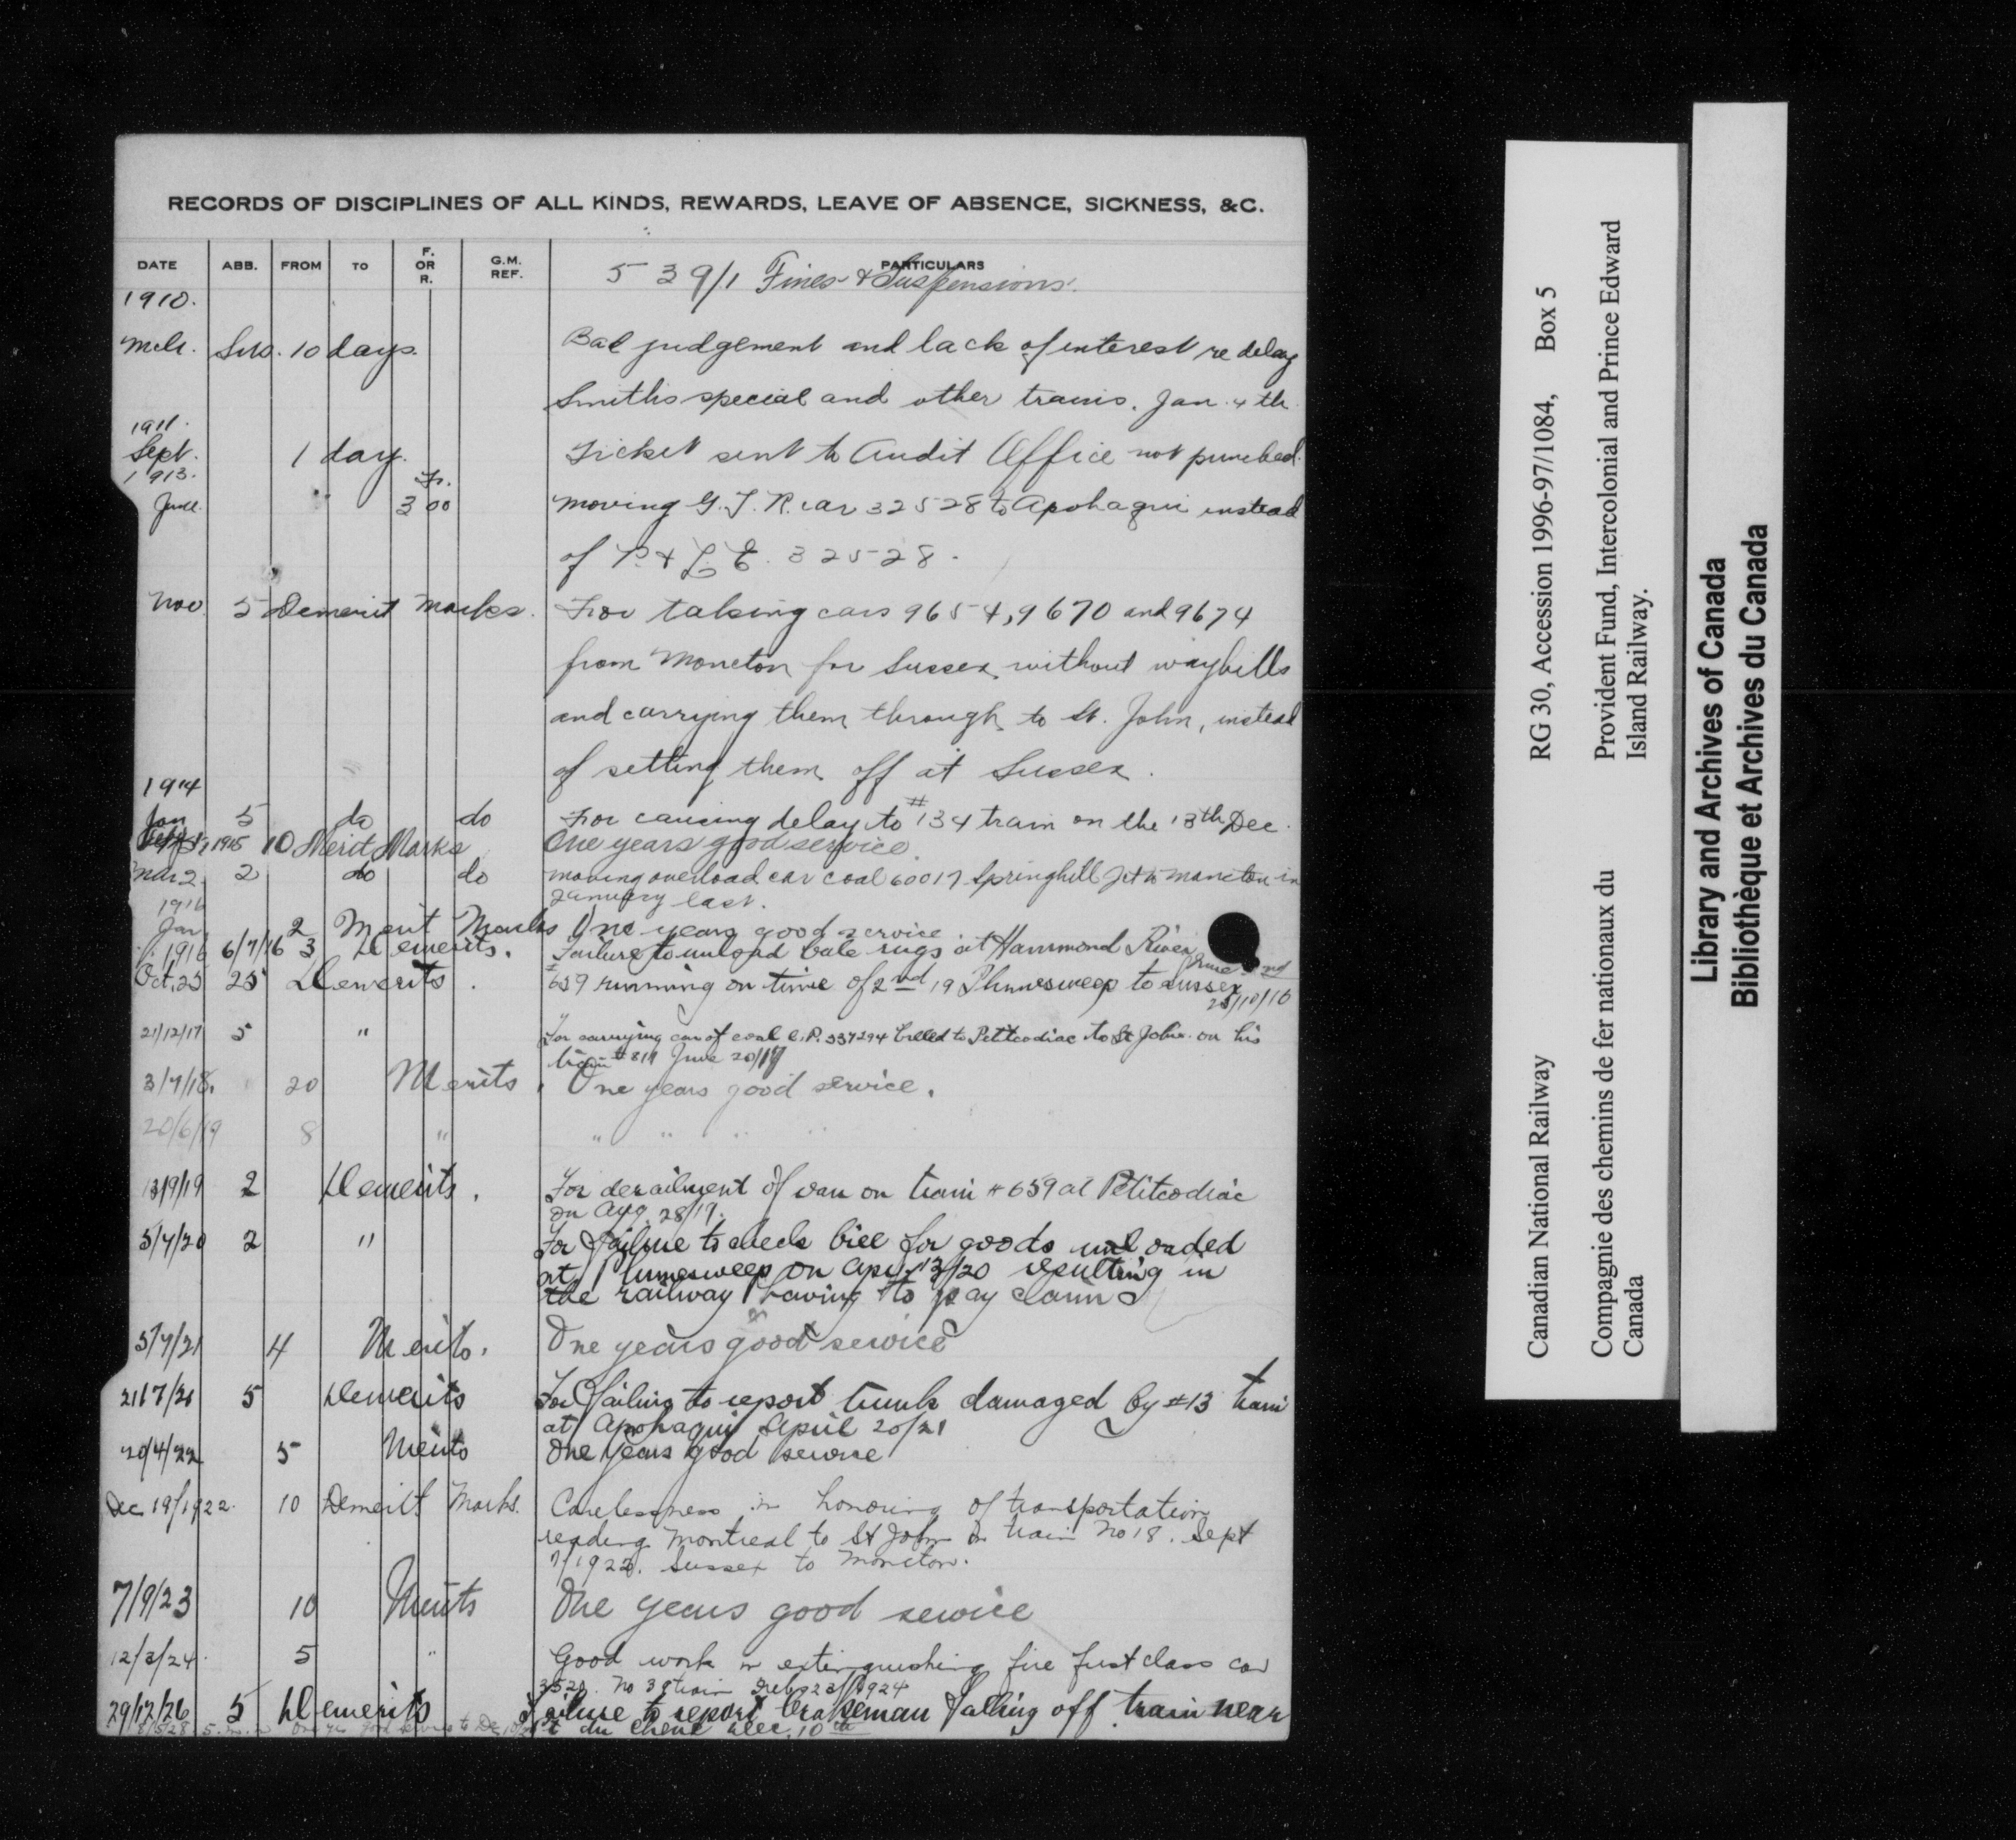 RECORDS OF DISCIPLINES OF ALL KINDS, REWARDS, LEAVE OF ABSENCE, SICKNESS, &C.
DATE ABB. FROM TO F. OR R. G.M. REF. PARTICULARS
539/1 Fines & Suspensions.
1910.
Mch. Sus. 10 days. Bad judgement and lack of interest re delay
Smiths special and other trains. Jan. 4th.
1911.
Sept. 1 day. Ticket sent to Audit Office not punched.
1913. Fr.
June. 3 00 Moving G.T.R. car 32528 to Apohaqui instead
of P. & L. E. 32528.
Nov 5 Demerit Marks. For taking cars 9654, 9670 and 9674
from Moncton for Sussex without waybills
and carrying them through to St. John, instead
of setting them off at Sussex.
1914
Jan 5 do do For causing delay to #134 train on the 13th Dec.
1915 10 Merit Marks One years good service.
Mar 2. 2 do do moving overload car coal 60017 Springhill Jct to Moncton in
January last.
1916
Jan 2 Merit Marks One years good service
1916 6/7/16 3 Demerits. Failure to unload bale rugs at Hammond River
June 2nd
Oct. 25 25 Demerits. #659 running on time of 2nd 19 Plumesweep to Sussex
25/10/16
21/12/17 5 " For carrying car of coal C.P. 337294 billed to Petitcodiac to St John on his
train #811 June 20/17
3/7/18. 20 Merits. One years good service.
20/6/19 8 " " " " "
13/9/19 2 Demerits. For derailment of van on train #659 at Petitcodiac
on Aug. 28/19.
5/7/20 2 " For failure to check bill for goods unloaded
at Plumesweep on Apr. 13/20 resulting in
the railway having to pay claim
5/7/21 4 Merits. One years good service
21/7/21 5 Demerits For failing to report trunk damaged by #13 train
at Apohaqui April 20/21
20/4/22 5 Merits One years good service
Dec 19/1922. 10 Demerit Marks. Carelessness in honoring of transportation
reading Montreal to St John on train No 18. Sept
7/1922. Sussex to Moncton.
7/9/23 10 Merits One years good service
12/3/24. 5 " Good work in extinguishing fire first class car
3520. No 39 train Feb 23/1924
29/12/26 5 Demerits Failure to report brakeman falling off train near
Pt du Chene Dec. 10th
Canadian National Railway RG 30, Accession 1996-97/1084, Box 5
Compagnie des chemins de fer nationaux du Canada
Provident Fund, Intercolonial and Prince Edward Island Railway.
Library and Archives of Canada
Bibliothèque et Archives du Canada